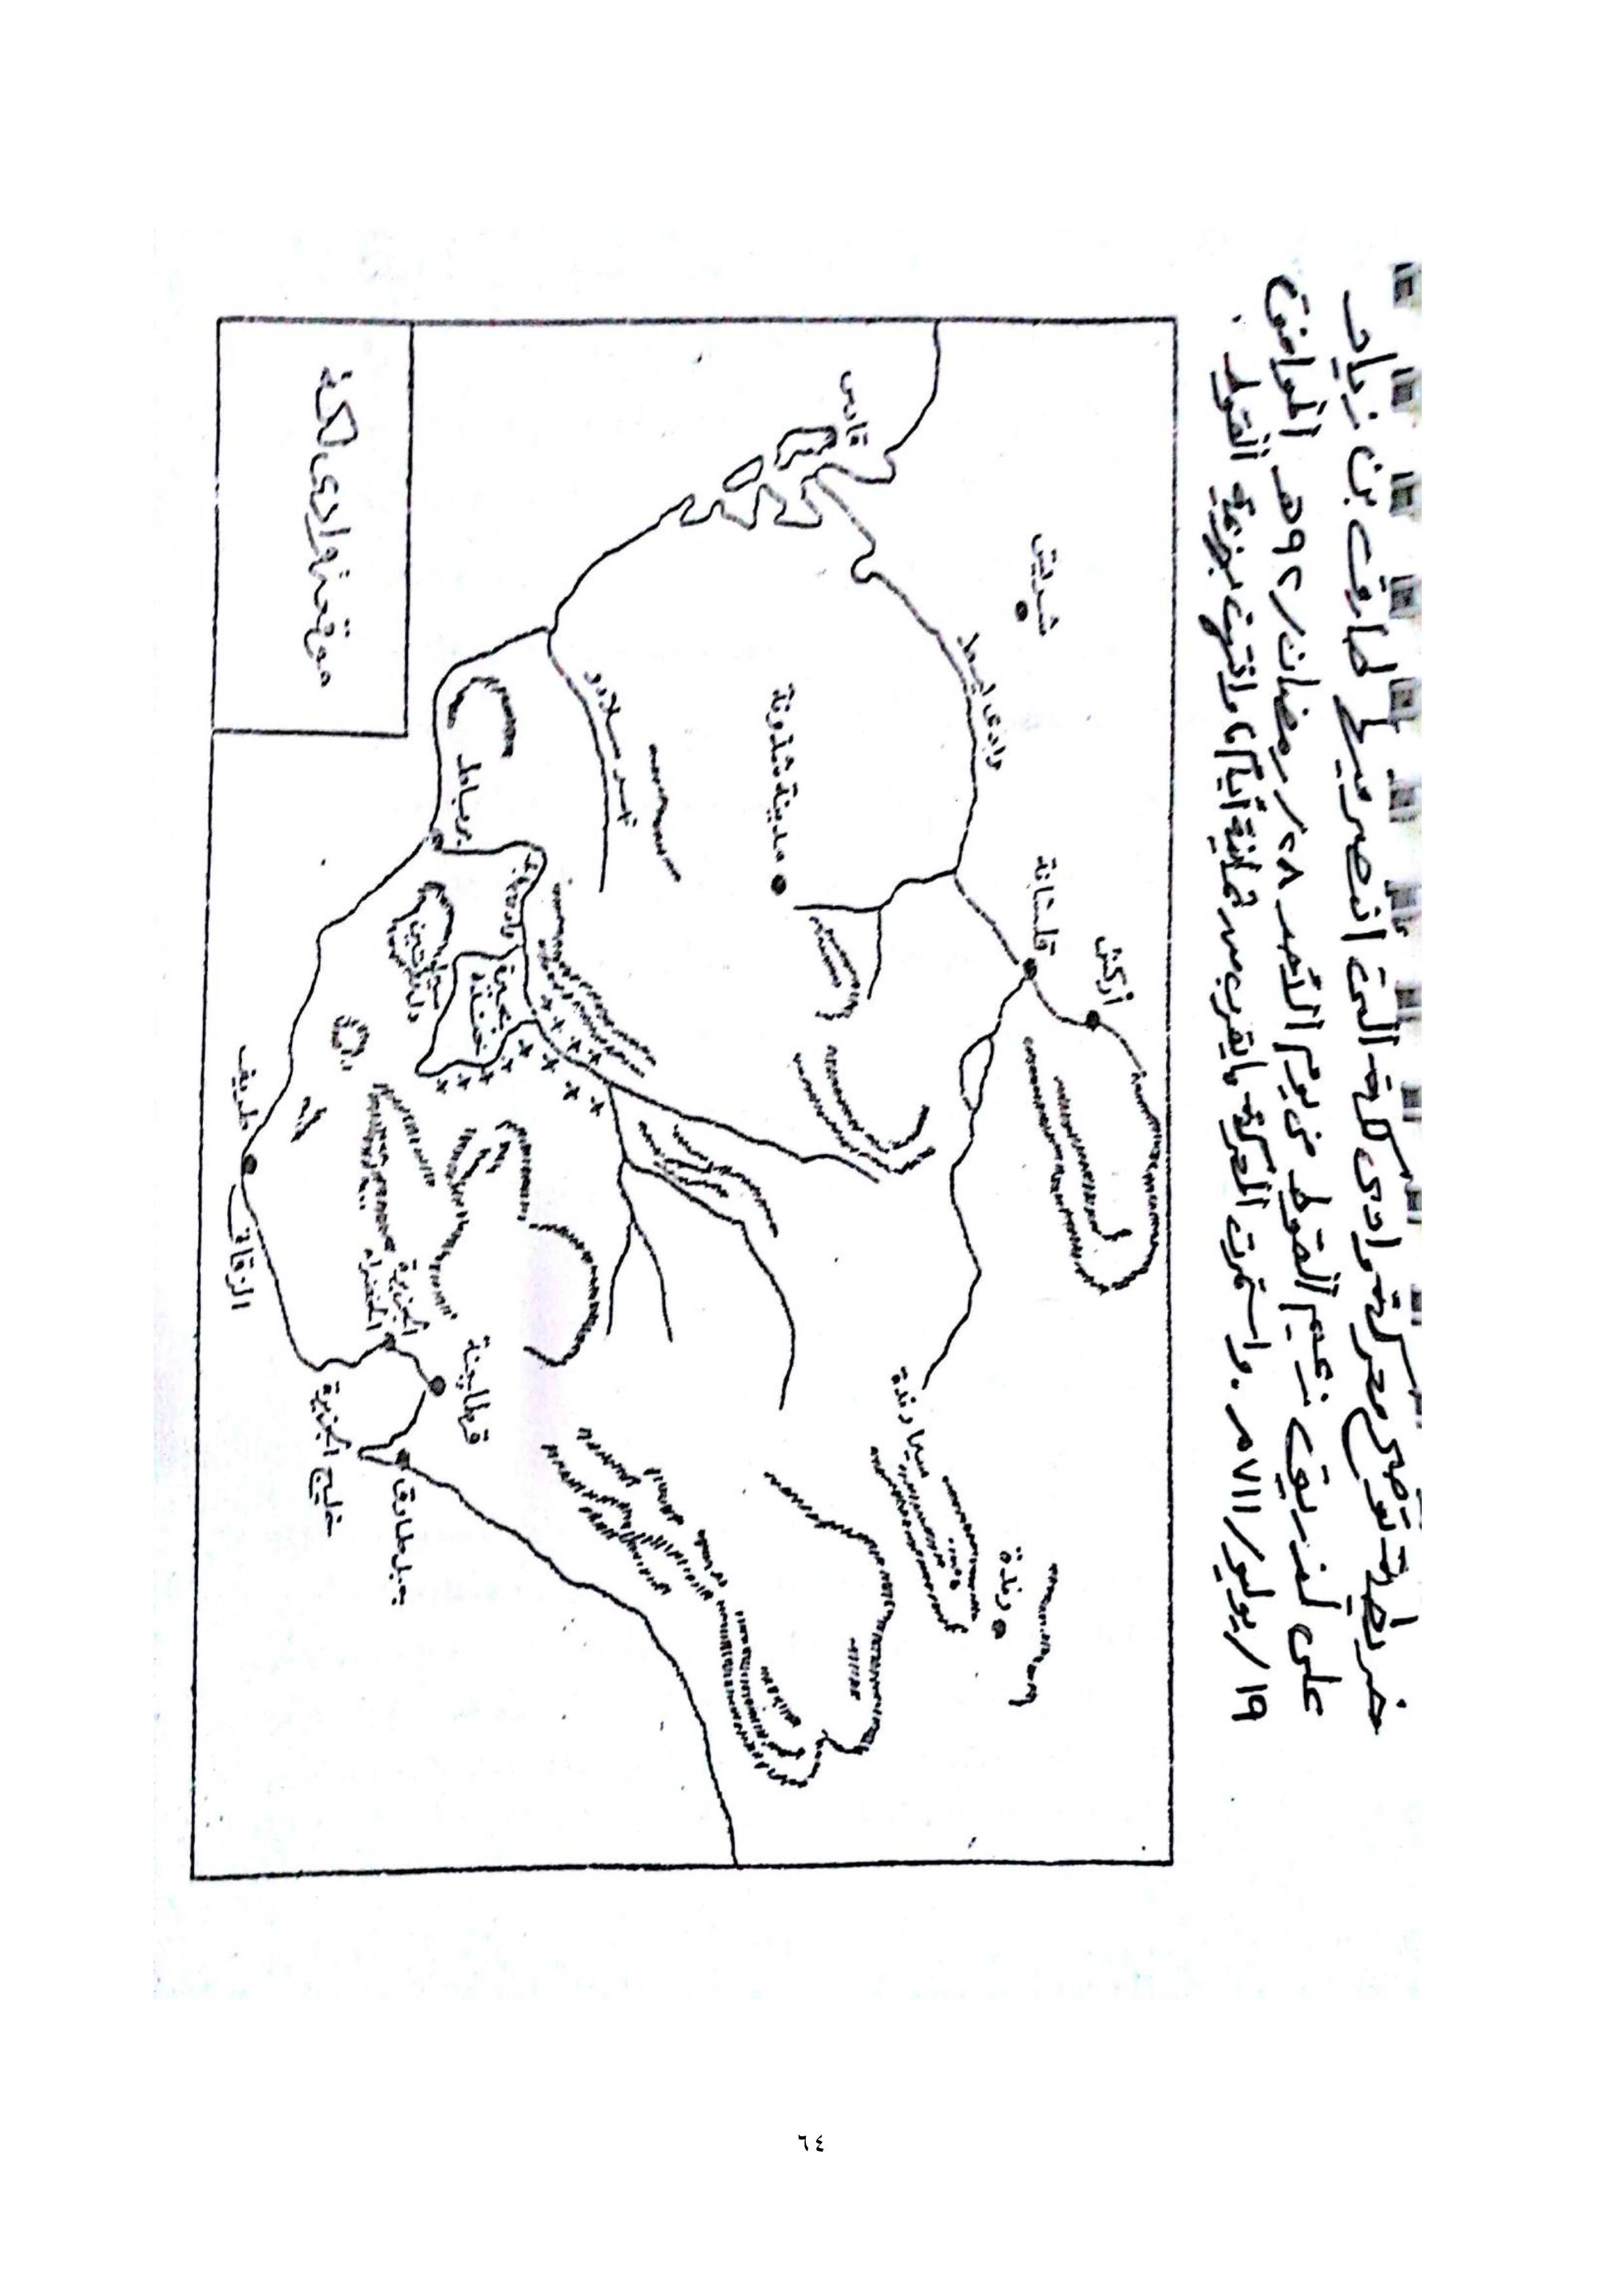 خريطة توضح معركة وادى لكة التى انتصر فيها طارق بن زياد
على لذريق زعيم القوط فى يوم الأحد ٢٨/رمضان/٩٢هـ الموافق
١٩/يوليو/٧١١م. واستمرت المعركة ما يقرب من ثمانية أيام وانتهت بهزيمة القوط.
أركش
قلسانة
شريش
وادى
رندة
رندة
قادس
مدينة شذونة
نهر سلادو
برباط
بحيرة
خندة
الجزيرة
الخضراء
قرطاجنة
جبل طارق
خليج الجزيرة
طريف
الزقاق
موقعة وادى لكة
٦٤